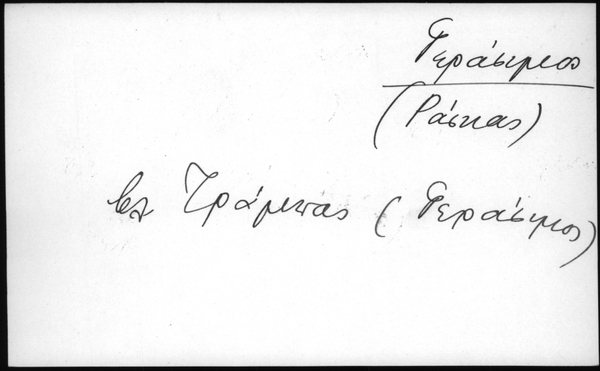 Γεράσιμος
(Ράσκας)
βλ Τράμπας (Γεράσιμος)